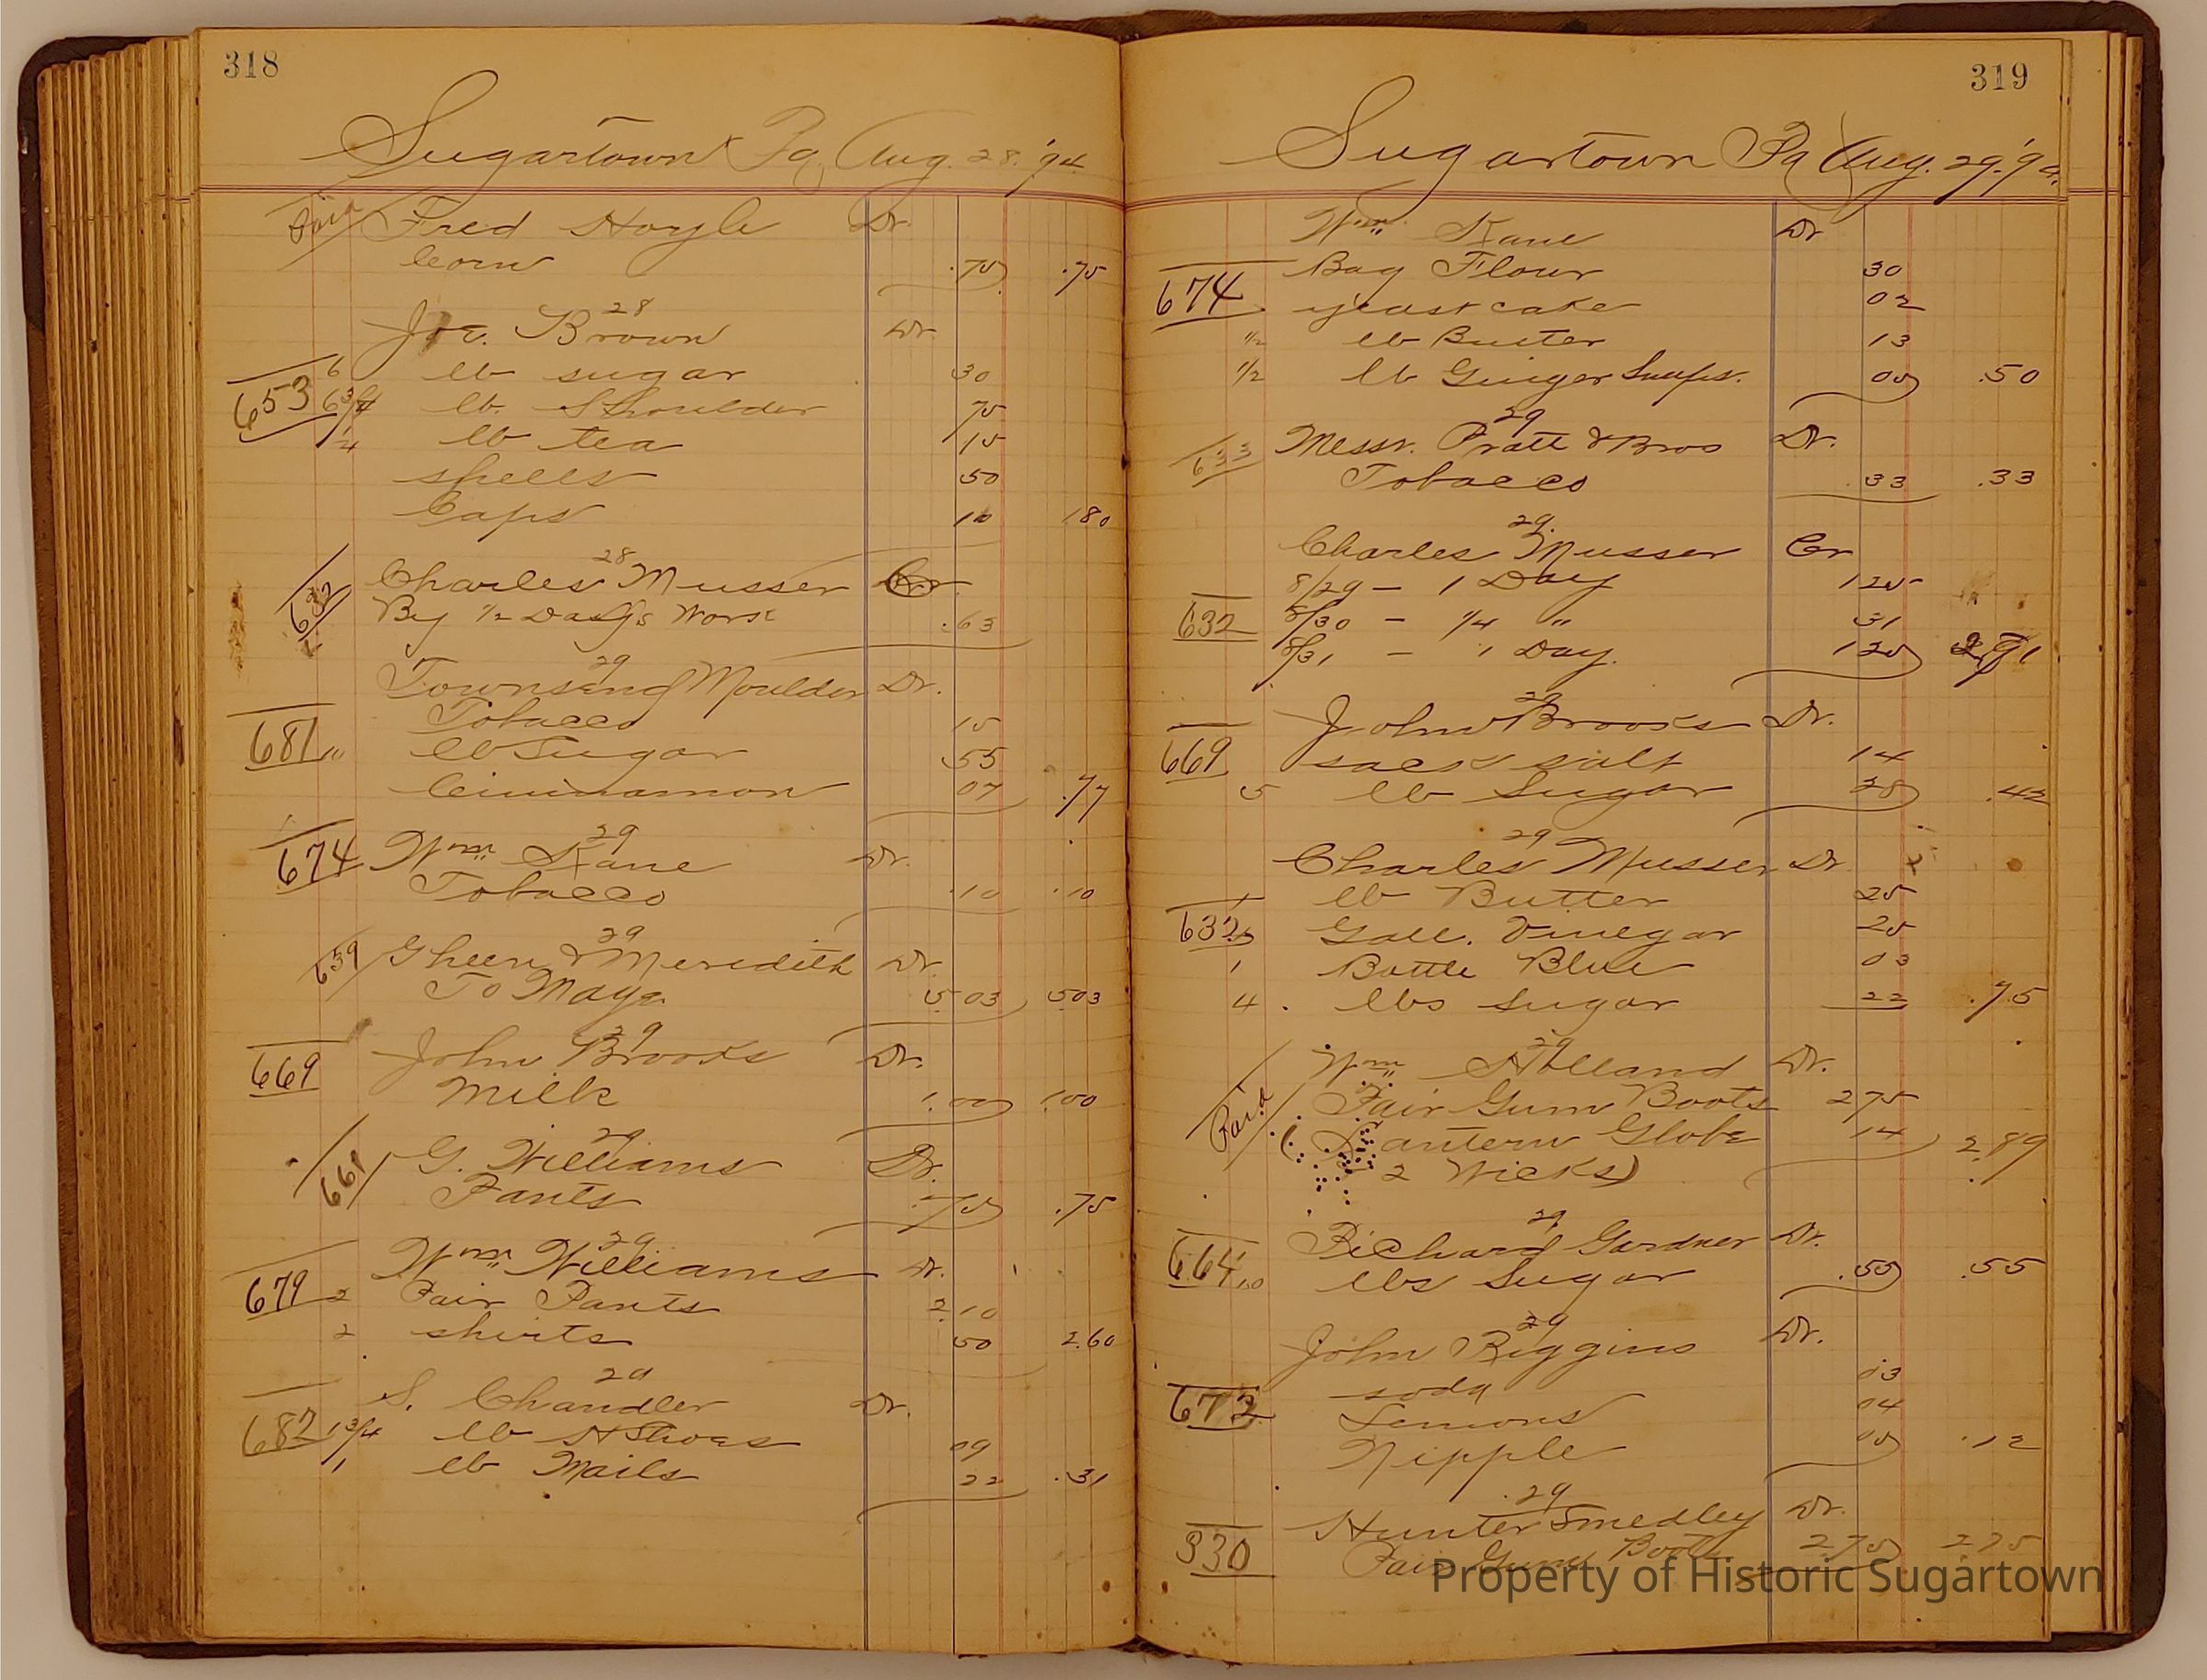 318
Sugartown Pa Aug. 28. '94
Paid Fred Hoyle Dr.
Corn .75 .75
28
Jno. Brown Dr.
653 6 lb sugar 30
6 3/4 lb. Shoulder 75
1/4 lb tea 15
shells 50
Caps 10 180
28
632 Charles Musser Cr.
By 1/2 Day's Work .63
29
Townsend Moulder Dr.
Tobacco 15
681 " lb Sugar 55
Cinnamon 07 .77
29
674 Wm Kane Dr.
Tobacco .10 .10
29
659 Gheen & Meredith Dr.
To 5.03 503
29
669 John Brooks Dr.
Milk 1.00 1.00
29
661 G. Williams Dr.
Pants .75 .75
29
Wm Williams Dr.
679 2 Pair Pants 2.10
2 shirts 50 2.60
29
S. Chandler Dr.
682 1 3/4 lb 09
1 lb Nails 22 .31
319
Sugartown Pa Aug. 29. '94.
Wm Kane Dr
Bag Flour 30
674 yeast cake 02
1/2 lb Butter 13
1/2 lb Ginger Snaps. 05 .50
29
633 Messr. Pratt & Bros Dr.
Tobacco .33 .33
29.
Charles Musser Cr
8/29 – 1 Day 125
632 8/30 – 1/4 " 31
8/31 – 1 Day. 125 2 81
29
John Brooks Dr.
669 sack salt 14
5 lb Sugar 28 .42
29
Charles Musser Dr
1 lb Butter 25
632 Gall. Vinegar 25
1 Bottle Blue 03
4 lbs Sugar 22 .75
29
Wm Holland Dr.
Paid Pair Gum Boots 275
(Lantern Globe 14 2.89
2 Wicks)
29
Richard Gardner Dr.
664 10 lbs Sugar .55 .55
29
John Riggins Dr.
soda 03
673 Lemons 04
Nipple 05 .12
29
Hunter Smedley Dr.
330 Pair Gum Boots 2.75 2.75
Property of Historic Sugartown